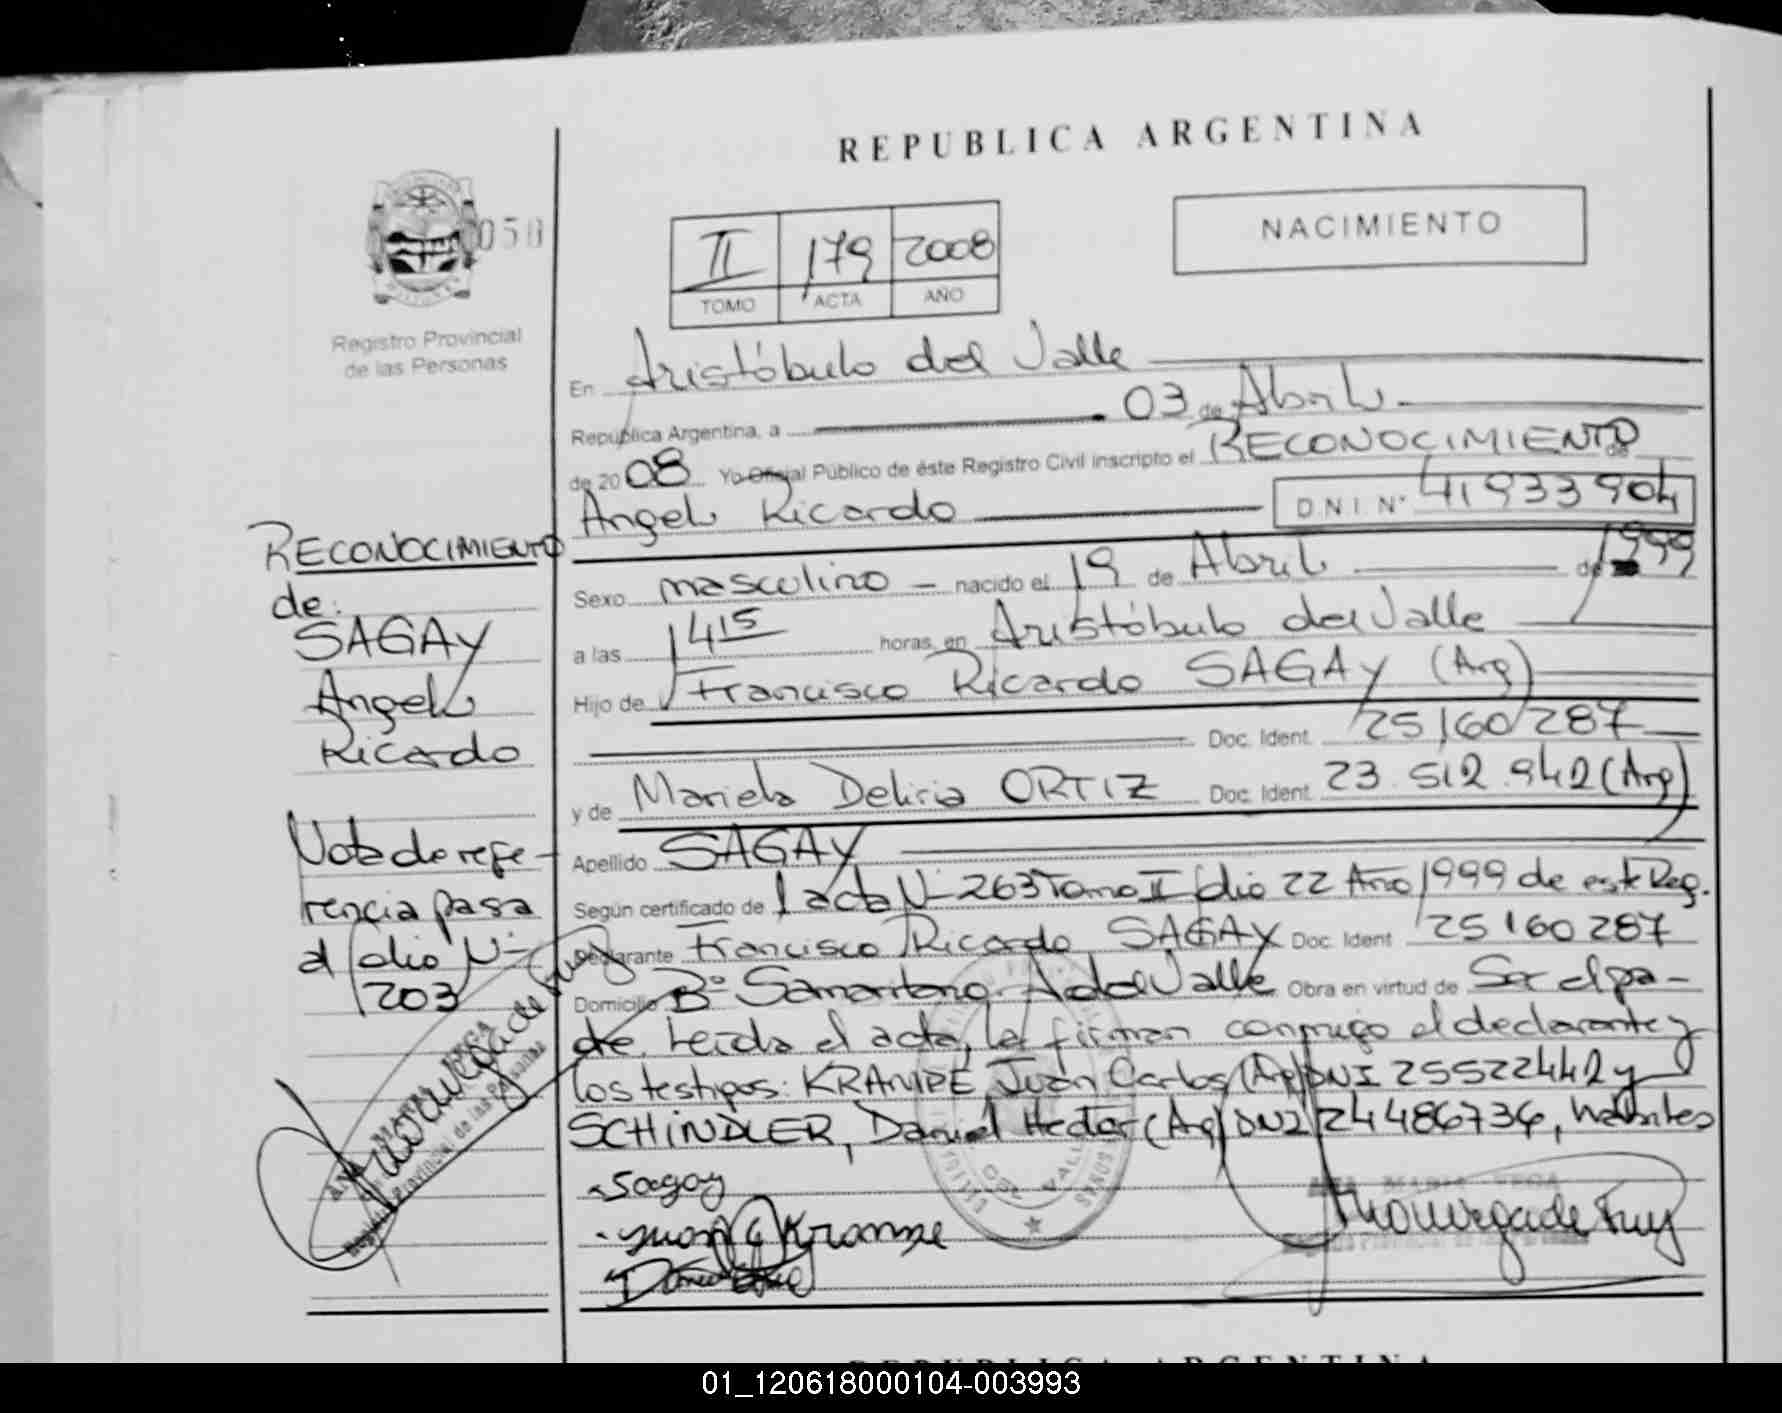 REPUBLICA ARGENTINA
050
NACIMIENTO
II 179 2008
TOMO ACTA AÑO
Registro Provincial
de las Personas
En Aristóbulo del Valle
República Argentina, a 03 de Abril
de 2008 Yo Oficial Público de éste Registro Civil inscripto el RECONOCIMIENTO de
Angel Ricardo D.N.I. N° 41933904
Sexo masculino nacido el 19 de Abril de 1999
a las 1415 horas, en Aristóbulo del Valle
Hijo de Francisco Ricardo SAGAY (Arg)
Doc. Ident. 25160287
y de Mariela Deliria ORTIZ Doc. Ident. 23.512.942 (Arg)
Apellido SAGAY
Según certificado de acta N- 263 Tomo II folio 22 Año 1999 de este Reg.
Declarante Francisco Ricardo SAGAY Doc. Ident 25160287
Domicilio B° Samaritano. A del Valle Obra en virtud de Ser el pa-
dre. Leída el acta, la firman conmigo el declarante y
los testigos: KRAMPE Juan Carlos (Ar) DNI 25522442 y
SCHINDLER, Daniel Hector (Arg) DNI 24486736, habientes
Sagay
Juan C Krampe
RECONOCIMIENTO
de:
SAGAY
Angel
Ricardo
Nota de refe-
rencia pasa
al folio N-
203
ANA MARIA VEGA
Registro Provincial de las Personas
ANA MARIA VEGA
Registro Provincial de las Personas
REPUBLICA ARGENTINA
01_120618000104-003993